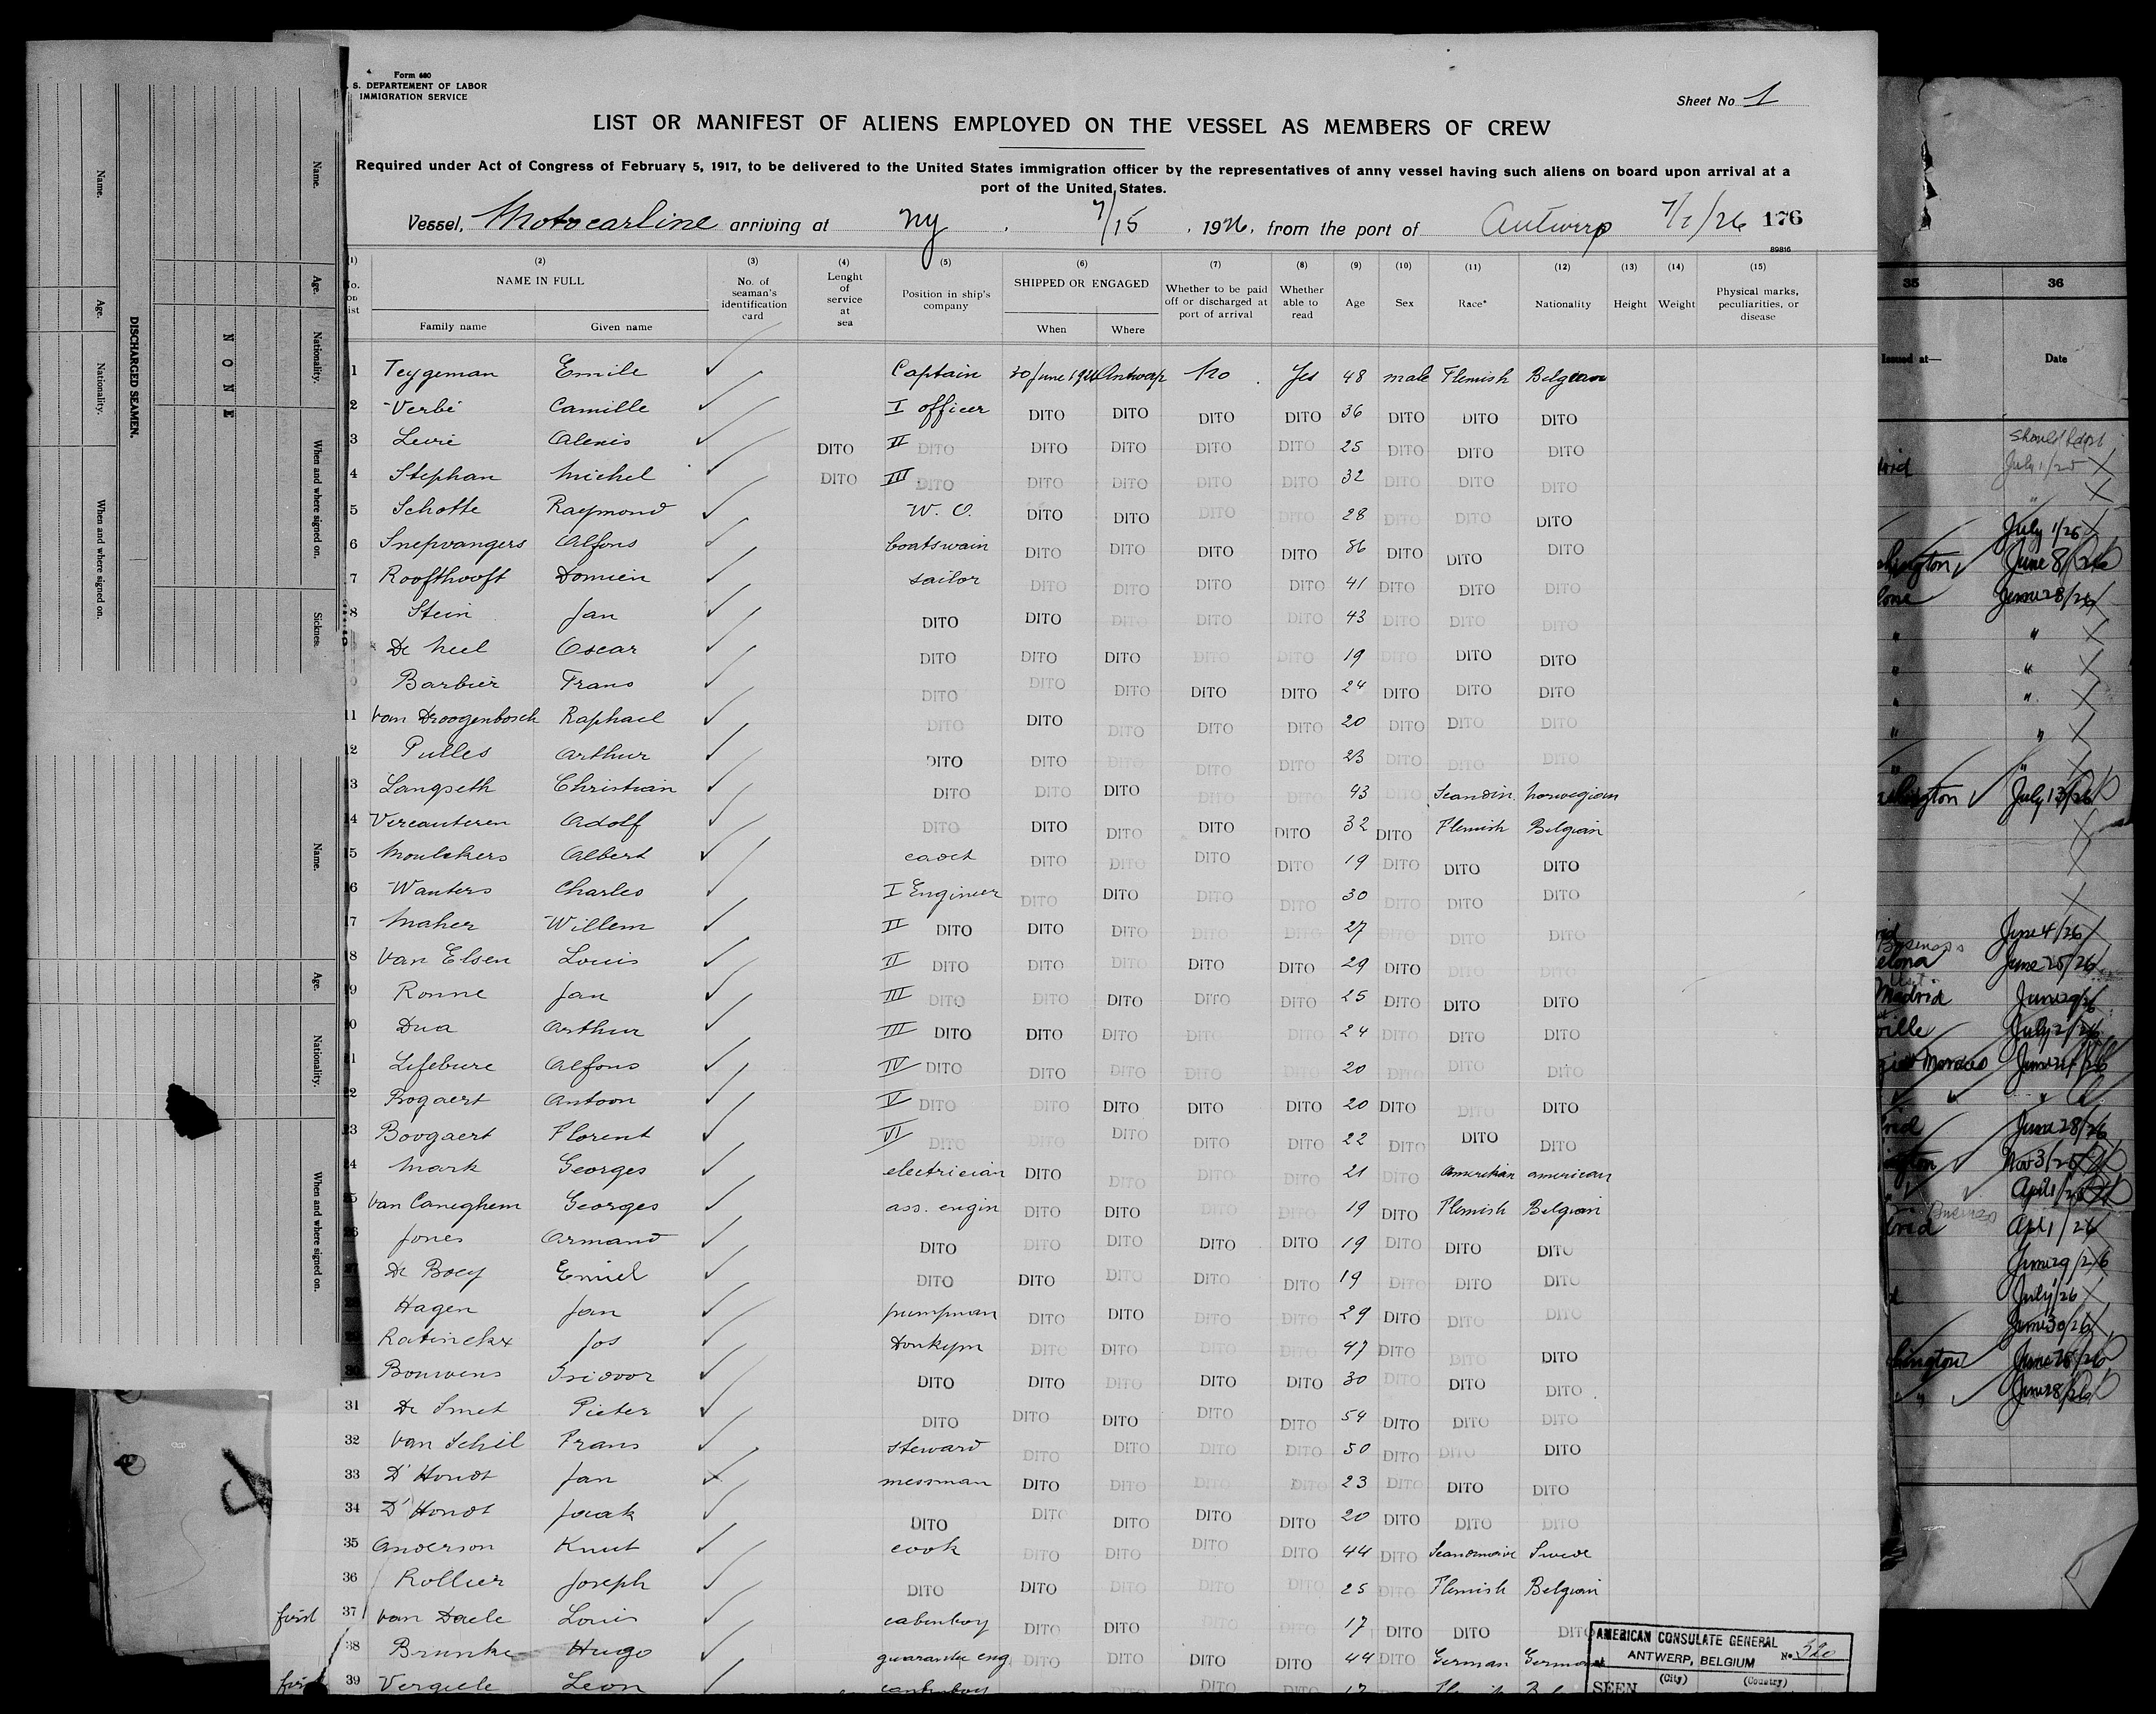 Form 680
S. DEPARTEMENT OF LABOR
IMMIGRATION SERVICE
Sheet No 1
LIST OR MANIFEST OF ALIENS EMPLOYED ON THE VESSEL AS MEMBERS OF CREW
Required under Act of Congress of February 5, 1917, to be delivered to the United States immigration officer by the representatives of anny vessel having such aliens on board upon arrival at a
port of the United States.
Vessel, Motocarline arriving at Ny 7/15 1926, from the port of Antwerp 7/1/26 176
89816
(1) (2) (3) (4) (5) (6) (7) (8) (9) (10) (11) (12) (13) (14) (15)
NAME IN FULL No. of seaman's identification card Lenght of service at sea Position in ship's company SHIPPED OR ENGAGED Whether to be paid off or discharged at port of arrival Whether able to read Age Sex Race* Nationality Height Weight Physical marks, peculiarities, or disease
Family name Given name When Where
1 Teygeman Emile Captain 30 June 1926 Antwerp No Yes 48 male Flemish Belgian
2 Verbé Camille I officer DITO DITO DITO DITO 36 DITO DITO DITO
3 Levie Alexis DITO II DITO DITO DITO DITO DITO 25 DITO DITO DITO
4 Stephan Michel DITO III DITO DITO DITO DITO DITO 32 DITO DITO DITO
5 Schotte Raymond W. O. DITO DITO DITO DITO 28 DITO DITO DITO
6 Snepvangers Alfons boatswain DITO DITO DITO DITO 36 DITO DITO DITO
7 Roofthooft Domien sailor DITO DITO DITO DITO 41 DITO DITO DITO
8 Stein Jan DITO DITO DITO DITO DITO 43 DITO DITO DITO
De Neel Oscar DITO DITO DITO DITO DITO 19 DITO DITO DITO
Barbier Frans DITO DITO DITO DITO DITO 24 DITO DITO DITO
11 Van Droogenbosch Raphael DITO DITO DITO DITO DITO 20 DITO DITO DITO
12 Pulles Arthur DITO DITO DITO DITO DITO 23 DITO DITO DITO
13 Langseth Christian DITO DITO DITO DITO DITO 43 DITO Scandin. Norwegian
14 Vercauteren Adolf DITO DITO DITO DITO DITO 32 DITO Flemish Belgian
15 Moulckers Albert cadet DITO DITO DITO DITO 19 DITO DITO DITO
16 Wauters Charles I Engineer DITO DITO DITO DITO 30 DITO DITO DITO
17 Maher Willem II DITO DITO DITO DITO DITO 27 DITO DITO DITO
18 Van Elsen Louis II DITO DITO DITO DITO DITO 29 DITO DITO DITO
19 Ronne Jan III DITO DITO DITO DITO DITO 25 DITO DITO DITO
20 Dua Arthur III DITO DITO DITO DITO DITO 24 DITO DITO DITO
21 Lefebure Alfons IV DITO DITO DITO DITO DITO 20 DITO DITO DITO
22 Bogaert Antoon V DITO DITO DITO DITO DITO 20 DITO DITO DITO
23 Boogaert Florent VI DITO DITO DITO DITO DITO 22 DITO DITO DITO
24 Mark Georges electrician DITO DITO DITO DITO 21 DITO American american
25 Van Caneghem Georges ass. engin DITO DITO DITO DITO 19 DITO Flemish Belgian
26 Jones Armand DITO DITO DITO DITO DITO 19 DITO DITO DITO
27 De Boey Emiel DITO DITO DITO DITO DITO 19 DITO DITO DITO
Hagen Jan pumpman DITO DITO DITO DITO 29 DITO DITO DITO
Ratinckx Jos Donkym DITO DITO DITO DITO 47 DITO DITO DITO
30 Bouwens Isidoor DITO DITO DITO DITO DITO 30 DITO DITO DITO
31 De Smet Pieter DITO DITO DITO DITO DITO 54 DITO DITO DITO
32 Van Schil Frans steward DITO DITO DITO DITO 50 DITO DITO DITO
33 D'Hondt Jan messman DITO DITO DITO DITO 23 DITO DITO DITO
34 D'Hondt Jaak DITO DITO DITO DITO DITO 20 DITO DITO DITO
35 Anderson Knut cook DITO DITO DITO DITO 44 DITO Swede
36 Rollier Joseph DITO DITO DITO DITO DITO 25 DITO Flemish Belgian
first 37 Van Daele Louis cabinboy DITO DITO 17 DITO DITO DITO
38 Brunke Hugo guarantee eng. DITO DITO DITO DITO 44 DITO German German
first 39 Vergiele Leon cabinboy DITO DITO DITO 17
AMERICAN CONSULATE GENERAL
at ANTWERP, BELGIUM No 320
(City) (Country)
SEEN
DISCHARGED SEAMEN.
Name. Age. Nationality. When and where signed on.
NONE
Name. Age. Nationality. When and where signed on. Sickness.
Name. Age. Nationality. When and where signed on.
35 36
Issued at— Date
July 1/26
June 8/26
June 28/26
July 13/26
June 4/26
June 25/26
Madrid June 29/26
July 2/26
June 28/26
Nov 3/25
Apl 1/26
June 29/26
July 1/26
June 30/26
June 28/26